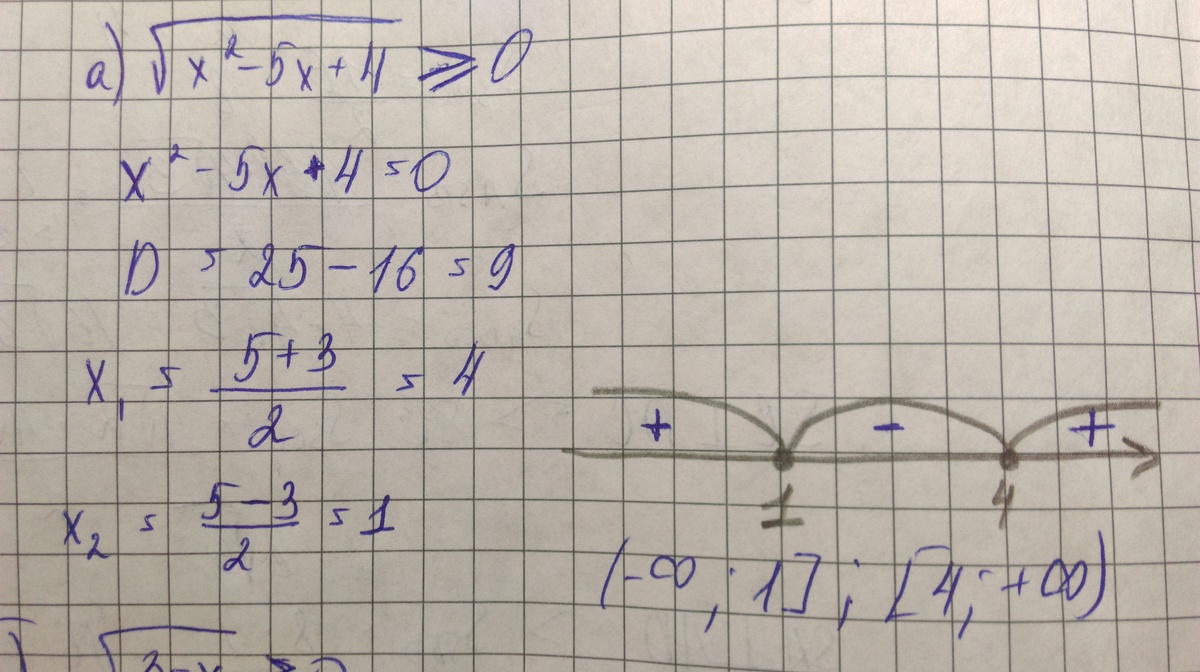 a) √(x² - 5x + 4) ⩾ 0
x² - 5x + 4 = 0
D = 25 - 16 = 9
x₁ = (5 + 3)/2 = 4
x₂ = (5 - 3)/2 = 1
+ - +
1 4
(-∞; 1]; [4; +∞)